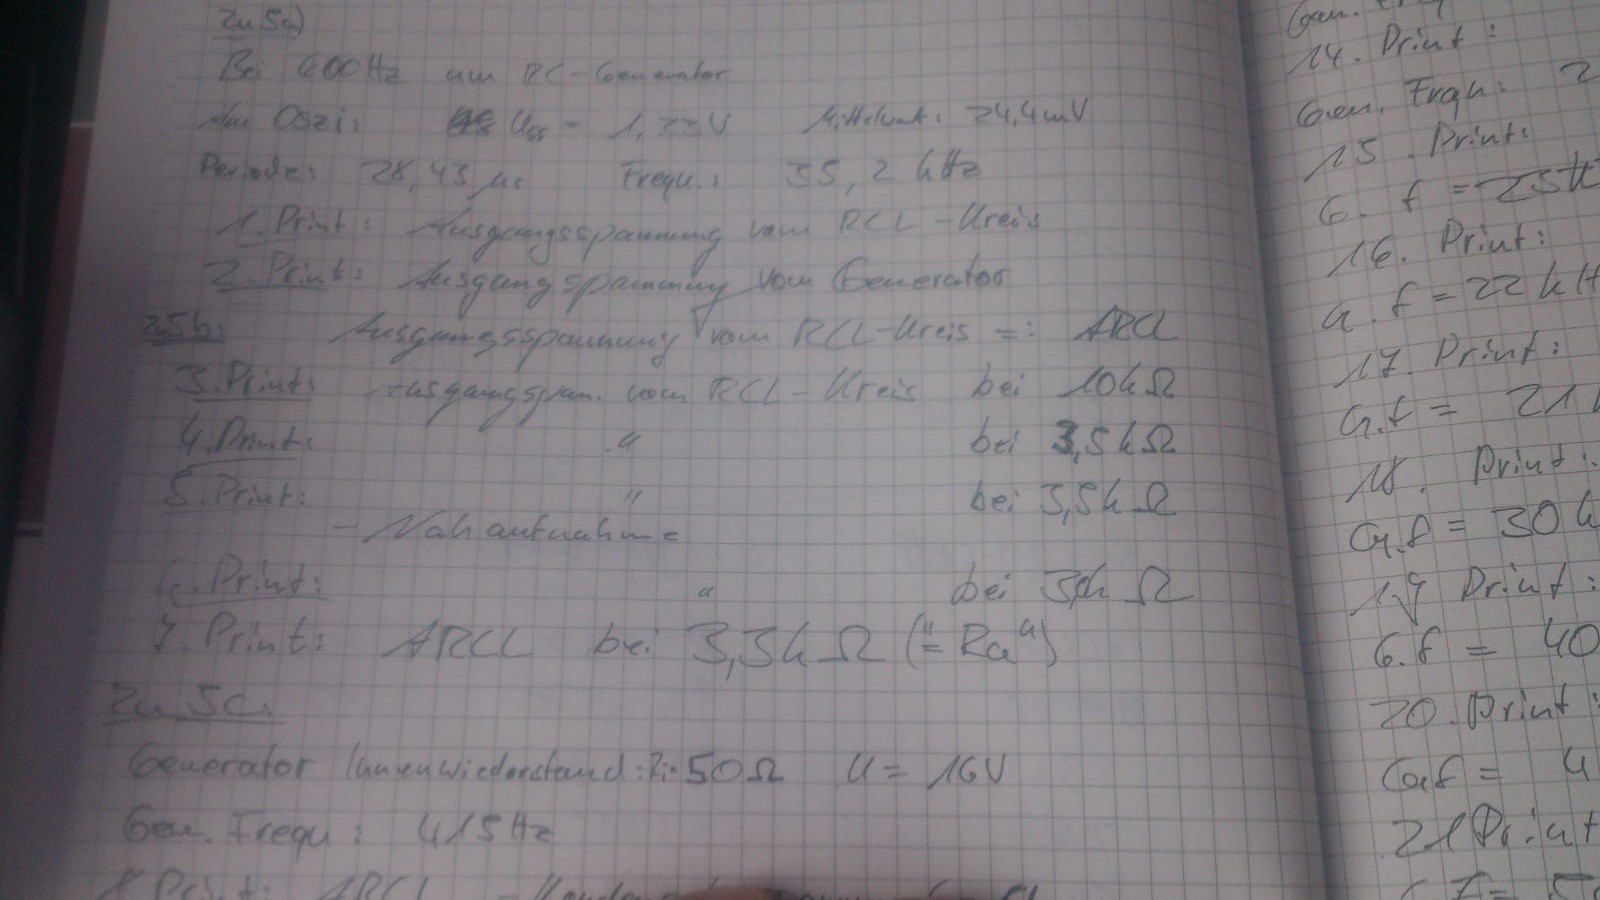 Zu 5a)
Bei 600Hz am RC-Generator
Am Oszi: Uss = 1,23V Mittelwert: 24,4mV
Periode: 28,43 µs Frequ.: 35,2 kHz
1. Print: Ausgangsspannung vom RCL-Kreis
2. Print: Ausgangspannung vom Generator
Zu 5b: Ausgangsspannung vom RCL-Kreis =: ARCL
3. Print: Ausgangsspan. vom RCL-Kreis bei 10kΩ
4. Print: " bei 3,5kΩ
5. Print: " bei 3,5kΩ
- Nahaufnahme
6. Print: " bei 3kΩ
7. Print: ARCL bei 3,3kΩ ("= Ra")
Zu 5c:
Generator Innenwiederstand: Ri=50Ω U = 16V
Gen. Frequ: 415Hz
Print: ARCL -
Gen.
14. Print:
Gen. Frqu: 2
15. Print:
G. f = 25k
16. Print:
G. f = 22kH
17. Print:
G.f = 21
18. Print:
G.f = 30k
19 Print:
G.f = 40
20. Print:
G.f = 4
21 Print